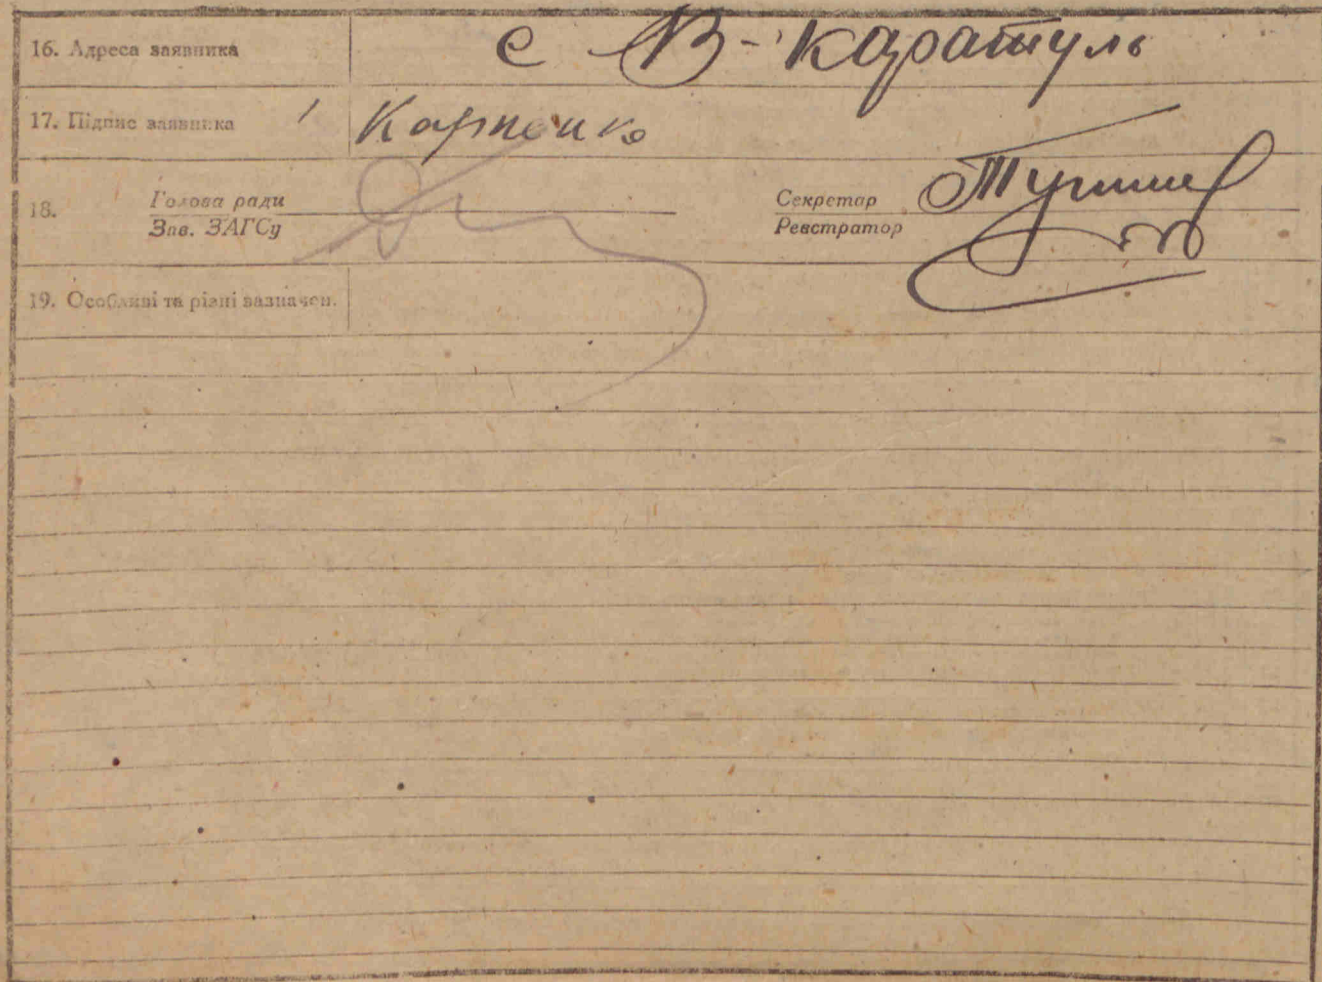 16. Адреса заявника с В-Каратуль
17. Підпис заявника Карпенко
18. Голова ради Секретар
Зав. ЗАГСу Реєстратор
19. Особливі та різні вазначен.